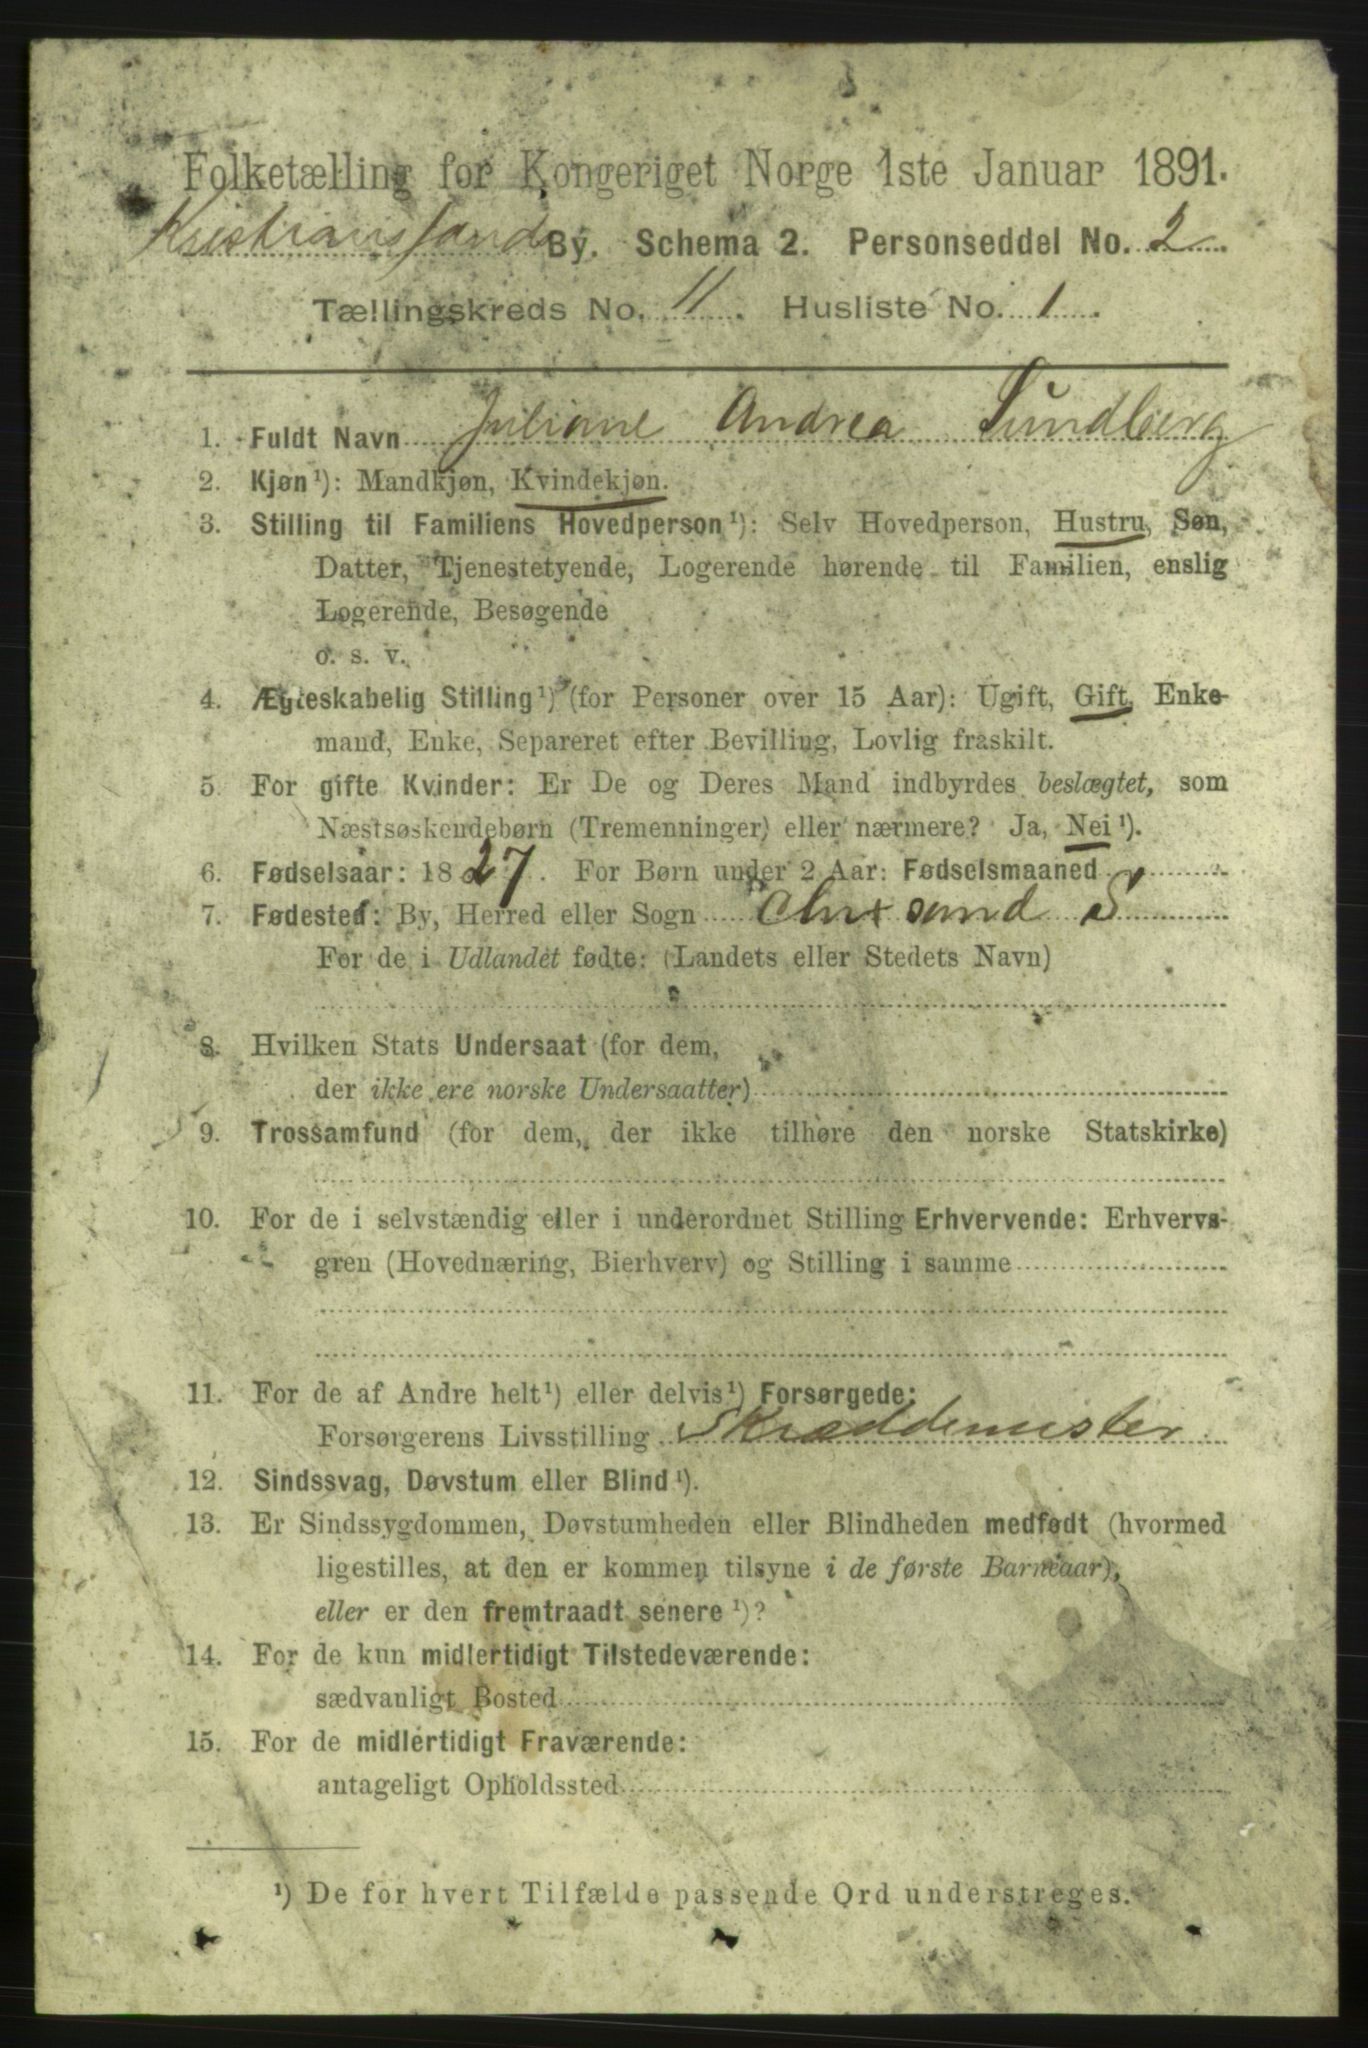 Folketælling for Kongeriget Norge 1ste Januar 1891.
Kristianssands By. Schema 2. Personseddel No. 2.
Tællingskreds No. 11. Husliste No. 1.
1. Fuldt Navn Juliane Andrea Sundberg
2. Kjøn¹): Mandkjøn, Kvindekjøn.
3. Stilling til Familiens Hovedperson¹): Selv Hovedperson, Hustru, Søn,
Datter, Tjenestetyende, Logerende hørende til Familien, enslig
Logerende, Besøgende
o. s. v.
4. Ægteskabelig Stilling¹) (for Personer over 15 Aar): Ugift, Gift, Enke-
mand, Enke, Separeret efter Bevilling, Lovlig fraskilt.
5. For gifte Kvinder: Er De og Deres Mand indbyrdes beslægtet, som
Næstsøskendebørn (Tremenninger) eller nærmere? Ja, Nei¹).
6. Fødselsaar: 1827. For Børn under 2 Aar: Fødselsmaaned
7. Fødested: By, Herred eller Sogn Chrxsand S
For de i Udlandet fødte: (Landets eller Stedets Navn)
8. Hvilken Stats Undersaat (for dem,
der ikke ere norske Undersaatter)
9. Trossamfund (for dem, der ikke tilhøre den norske Statskirke)
10. For de i selvstændig eller i underordnet Stilling Erhvervende: Erhvervs-
gren (Hovednæring, Bierhverv) og Stilling i samme
11. For de af Andre helt¹) eller delvis¹) Forsørgede:
Forsørgerens Livsstilling Skræddemester
12. Sindssvag, Døvstum eller Blind¹).
13. Er Sindssygdommen, Døvstumheden eller Blindheden medfødt (hvormed
ligestilles, at den er kommen tilsyne i de første Barneaar),
eller er den fremtraadt senere¹)?
14. For de kun midlertidigt Tilstedeværende:
sædvanligt Bosted
15. For de midlertidigt Fraværende:
antageligt Opholdssted
¹) De for hvert Tilfælde passende Ord understreges.